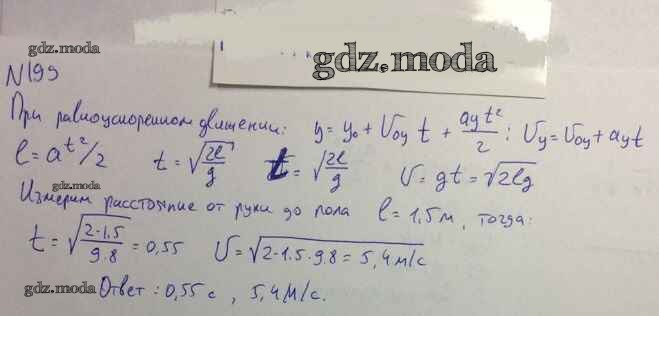 gdz.moda
gdz.moda
N 199
При равноускоренном движении: y = y₀ + V₀y t + ay t²/2 ; Vy = V₀y + ay t
l = at²/2 t = √(2l/g) t = √(2l/g) V = gt = √2lg
gdz.moda
Измерим расстояние от руки до пола l = 1,5 м, тогда:
t = √(2·1,5/9.8) = 0,55 V = √2·1,5·9,8 = 5,4 м/с
gdz.moda Ответ: 0,55 с, 5,4 м/с.